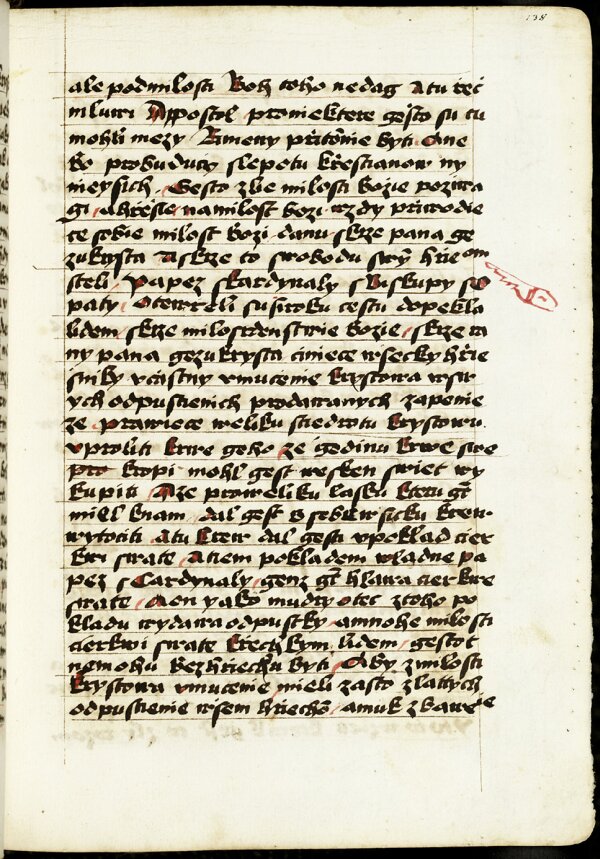 138
ale podmilosti Boh toho nedag A tu řeč
mluwi Appostol proniektere gesto su tu
mohli mezy Rimeny přitomie byti One
bo probuducy slepotu křestianow ny
nieysich Gesto zlie milosti bozie poziwa
gi ahřesie namilost bozi wzdy přiwodie
ce sobie milost bozi danu skrze pana ge
zukrysta A skrze to swobodu swym hřiechom
steli Papez skardynaly sbiskupy se
paty otewřeli su siroku cestu dopekla
lidem skrze milosrdenstwie bozie skrze ra
ny pana gezukrysta ciniece wsecky hřie
sniky vcastny vmucenie krystowa wsw
ych odpustienich prodawanych zapenie
ze prawiece weliku stiedrotu krystowu
vproliti krwe geho ze gedinu krwe swe
pro kropi mohl gest wesken swiet wy
kupiti A ze proweliku lasku kteru gt
miel knam dal gest z sebe wsicku krew
wytociti A tu krew dal gest vpoklad cier
kwi swate A tiem pokladem wladne pa
pez sCardynaly genz gt hlawa cierkwe
swate A on yako mudry otec ztoho po
kladu wydawa odpustky amnohe milosti
cierkwi swate křechkym lidem gestot
nemohu bezhřiechu byti Aby zmilosti
krystowa vmucenie mieli zasto zlatych
odpustienie wsem hřiechom amuk zbawenie